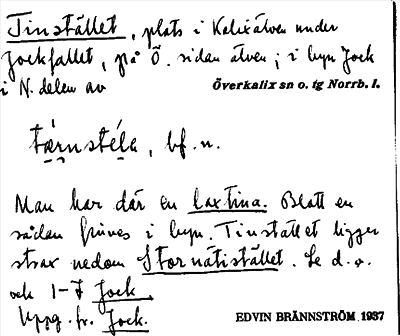 Tinstället, plats i Kalixälven under
Jockfallet, på Ö. sidan älven; i byn Jock
i N. delen av Överkalix sn o. tg Norrb. l.
bf. n.
Man har där en laxtina. Blott en
sådan finnes i byn. Tinstället ligger
strax nedom Stornätistället. Se d. o.
och 1-7 Jock.
Uppg. fr. Jock.
EDVIN BRÄNNSTRÖM 1937